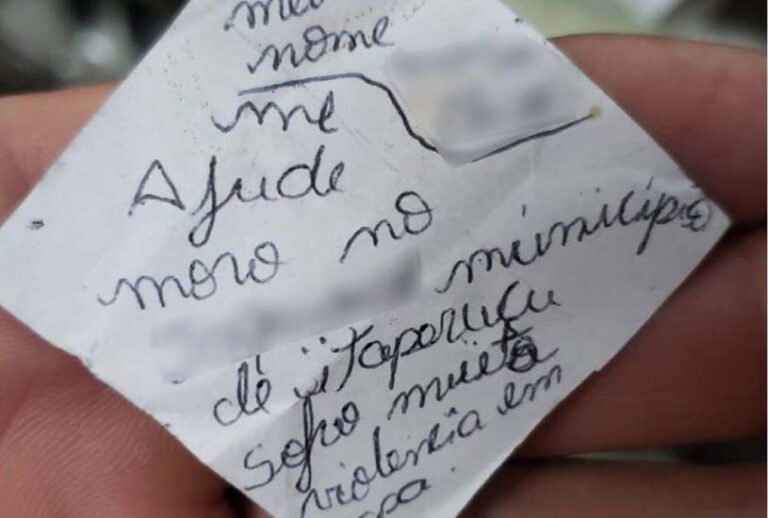 meu
nome
me
Ajude
moro no
município
de itaparucu
sofro muita
violencia em